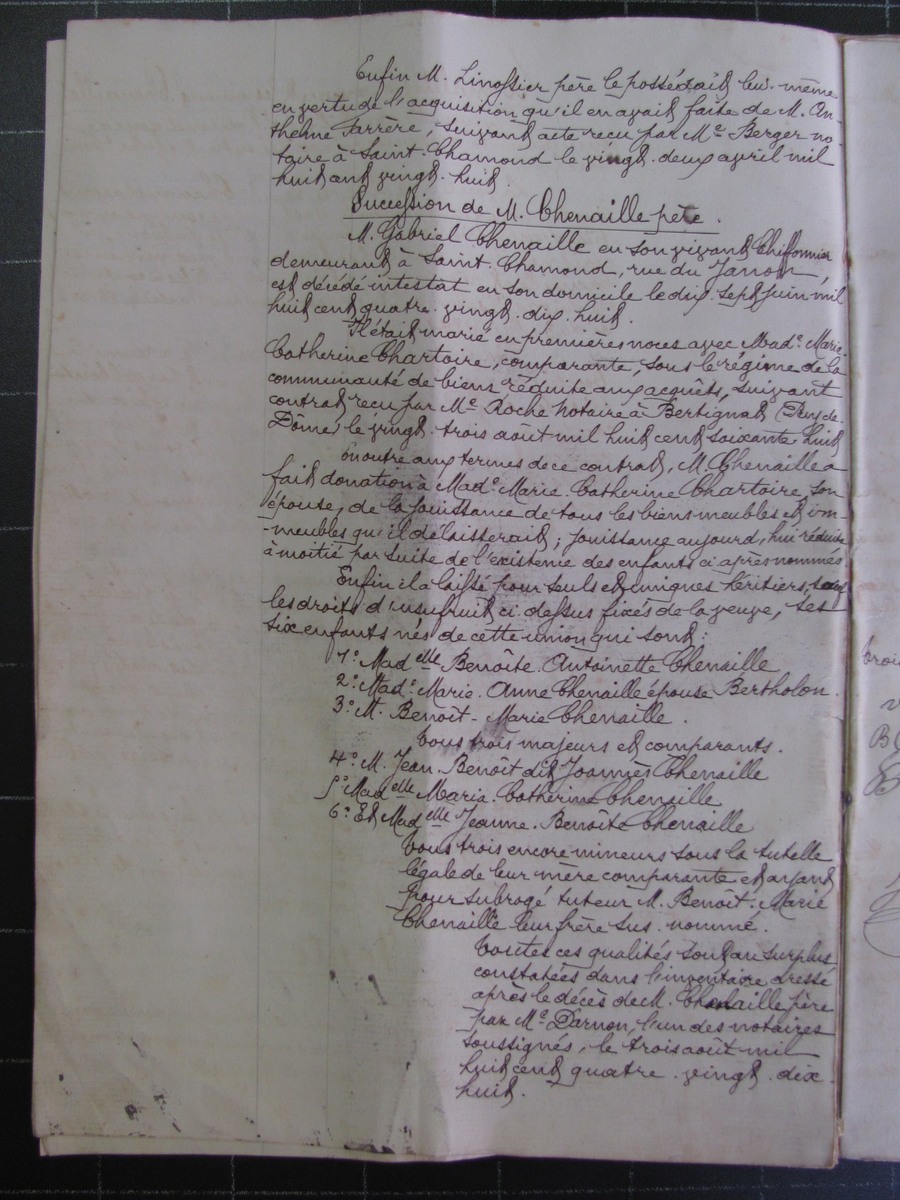 Enfin M. Linossier père le possédait lui-même
en vertu de l'acquisition qu'il en avait faite de M. An-
thelme Farrère, suivant acte reçu par Me Berger no-
taire à Saint-Chamond le vingt-deux avril mil
huit cent vingt-huit.
Succession de M. Chenaille père.
M. Gabriel Chenaille en son vivant Chiffonnier
demeurant à Saint-Chamond, rue du Janon,
est décédé intestat en son domicile le dix-sept juin mil
huit cent quatre-vingt-dix-huit.
Il était marié en premières noces avec Made Marie-
Catherine Chartoire, comparante, sous le régime de la
communauté de biens réduite aux acquêts, suivant
contrat reçu par Me Roche notaire à Bertignat (Puy-de-
Dôme) le vingt-trois août mil huit cent soixante-huit
En outre aux termes de ce contrat, M. Chenaille a
fait donation à Made Marie-Catherine Chartoire, son
épouse, de la jouissance de tous les biens meubles et im-
-meubles qu'il délaisserait; jouissance aujourd'hui réduite
à moitié par suite de l'existence des enfants ci-après nommés
Enfin il a laissé pour seuls et uniques héritiers, sauf
les droits d'usufruit ci-dessus fixés de la veuve, ses
six enfants nés de cette union qui sont:
1° Madelle Benôite-Antoinette Chenaille
2° Made Marie-Anne Chenaille épouse Bertholon.
3° M. Benoît-Marie Chenaille.
Tous trois majeurs et comparants.
4° M. Jean-Benoît dit Joannès Chenaille
5° Madelle Maria-Catherine Chenaille
6° Et Madelle Jeanne-Benoite Chenaille
Tous trois encore mineurs sous la tutelle
légale de leur mère comparante et ayant
pour subrogé tuteur M. Benoît-Marie
Chenaille leur frère sus-nommé.
Toutes ces qualités sont au surplus
constatées dans l'inventaire dressé
après le décès de M. Chenaille père
par Me Darnon, l'un des notaires
soussignés, le trois août mil
huit cent quatre-vingt-dix-
huit.